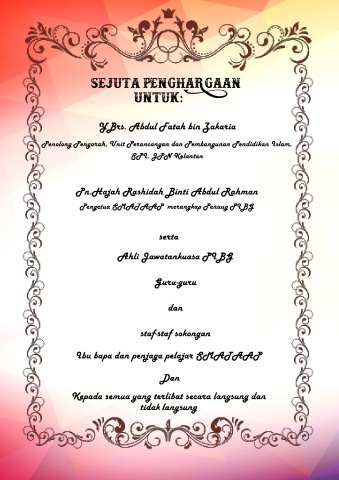 SEJUTA PENGHARGAAN
UNTUK:
Y.Brs. Abdul Fatah bin Zakaria
Penolong Pengarah, Unit Perancangan dan Pembangunan Pendidikan Islam,
SPI, JPN Kelantan
Pn.Hajah Rashidah Binti Abdul Rahman
Pengetua SMATAAP merangkap Penaug PIBG
serta
Ahli Jawatankuasa PIBG
Guru-guru
dan
staf-staf sokongan
Ibu bapa dan penjaga pelajar SMATAAP
Dan
Kepada semua yang terlibat secara langsung dan
tidak langsung